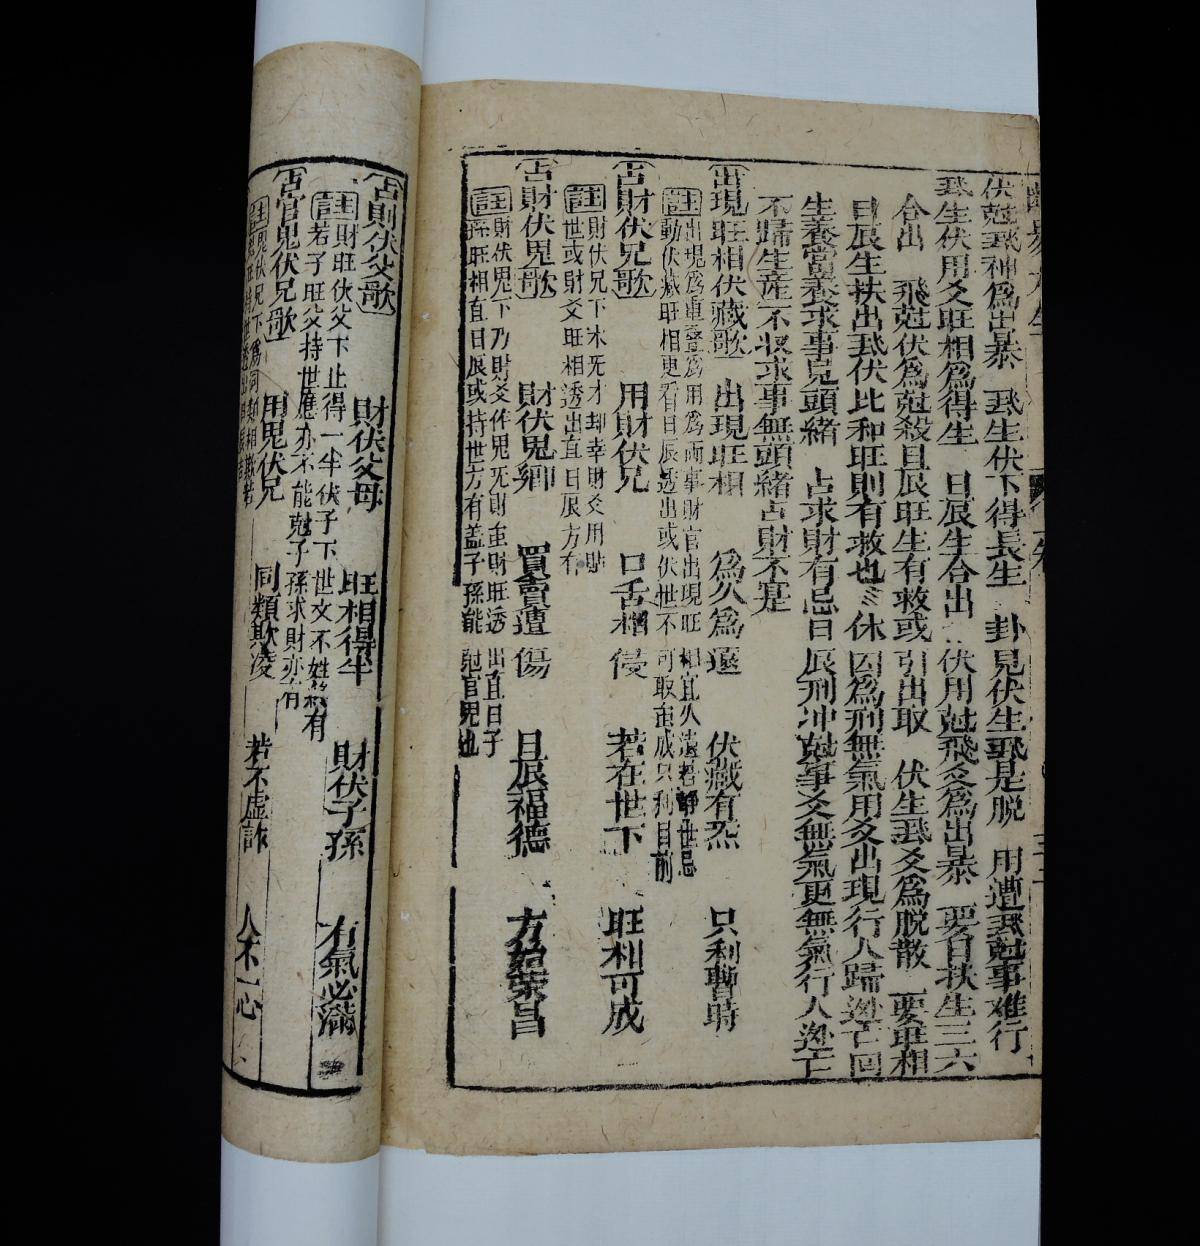 伏尅飛神為出暴 飛生伏下得長生 卦見伏生飛是脫 用遭飛尅事难行
飛生伏用爻旺相為得生 日辰生合出 伏用尅飛爻為出暴 要日扶生三六
合出 飛尅伏為尅殺日辰旺生有救或引出取 伏生飛爻為脫散 要旺相
日辰生扶出飛伏比和旺則有救也 休囚為刑無氣用爻出現行人歸迯亡回
生養當養求事見頭緒 占求財有忌日辰刑冲尅事爻無氣更無氣行人迯亡
不歸生産不収求事無頭緒占財不寔
出現旺相伏藏歌 出現旺相 為久為遠 伏藏有炁 只利暫時
註 出現為重疊為用為兩事財官出現旺相宜久遠若静世忌
動伏藏旺相更看日辰透出或伏世不可取虽成只利目前
占財伏兄歌 用財伏兄 口舌相侵 若在世下 旺相可成
註 財伏兄下本无才却幸財爻用貼
世或財爻旺相透出直日辰方有
占財伏鬼歌 財伏鬼鄉 買賣遭傷 日辰福德 方始榮昌
註 財伏鬼下乃財爻作鬼无財虽財旺透出直日子
孫旺相直日辰或持世方有盖子孫能尅官鬼也
占財伏父歌 財伏父母 旺相得半 財伏子孫 有氣必滿
註 財旺伏父下止得一半伏子下世爻不
若子旺父持世應亦不能尅子孫求財亦有
占官鬼伏兄歌 用鬼伏兄 同類欺凌 若不虛詐 人不一心